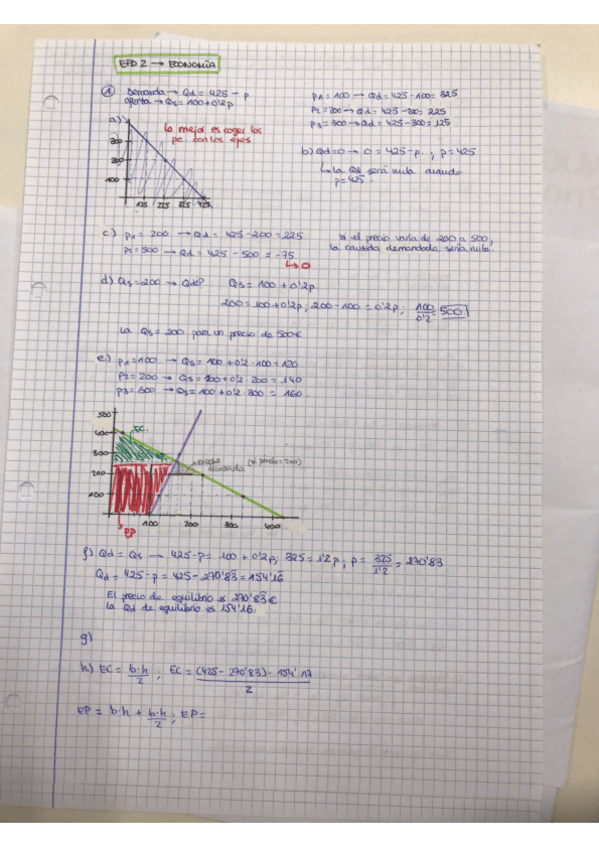 EPD 2 → ECONOMÍA
① Demanda → Qd = 425 - p
oferta → Qs = 100 + 0'2p
p1 = 100 → Qd = 425 - 100 = 325
p2 = 200 → Qd = 425 - 200 = 225
p3 = 300 → Qd = 425 - 300 = 125
a)
lo mejor es coger los
pc. con los ejes
300
200
100
125 225 325 425
b) Qd = 0 → 0 = 425 - p ; p = 425
↳ la Qd será nula cuando
p = 425.
c) p1 = 200 → Qd = 425 - 200 = 225
p2 = 500 → Qd = 425 - 500 = -75
↳ 0
si el precio varía de 200 a 500,
la cantidad demandada sería nula.
d) Qs = 200 → Qd? Qs = 100 + 0'2p
200 = 100 + 0'2p ; 200 - 100 = 0'2p ; 100/0'2 = 500
la Qs = 200 para un precio de 500€
e) p1 = 100 → Qs = 100 + 0'2 · 100 = 120
p2 = 200 → Qs = 100 + 0'2 · 200 = 140
p3 = 300 → Qs = 100 + 0'2 · 300 = 160.
500
400
EC.
300
200
100
100 200 300 400
EP
f) Qd = Qs → 425 - p = 100 + 0'2p ; 325 = 1'2p ; p = 325/1'2 = 270'83
Qd = 425 - p = 425 - 270'83 = 154'16
El precio de equilibrio es 270'83€
La Qd de equilibrio es 154'16.
g)
h) EC = b·h/2 ; EC = (425 - 270'83) · 154'17 / 2
EP = b·h + b·h/2 ; EP =